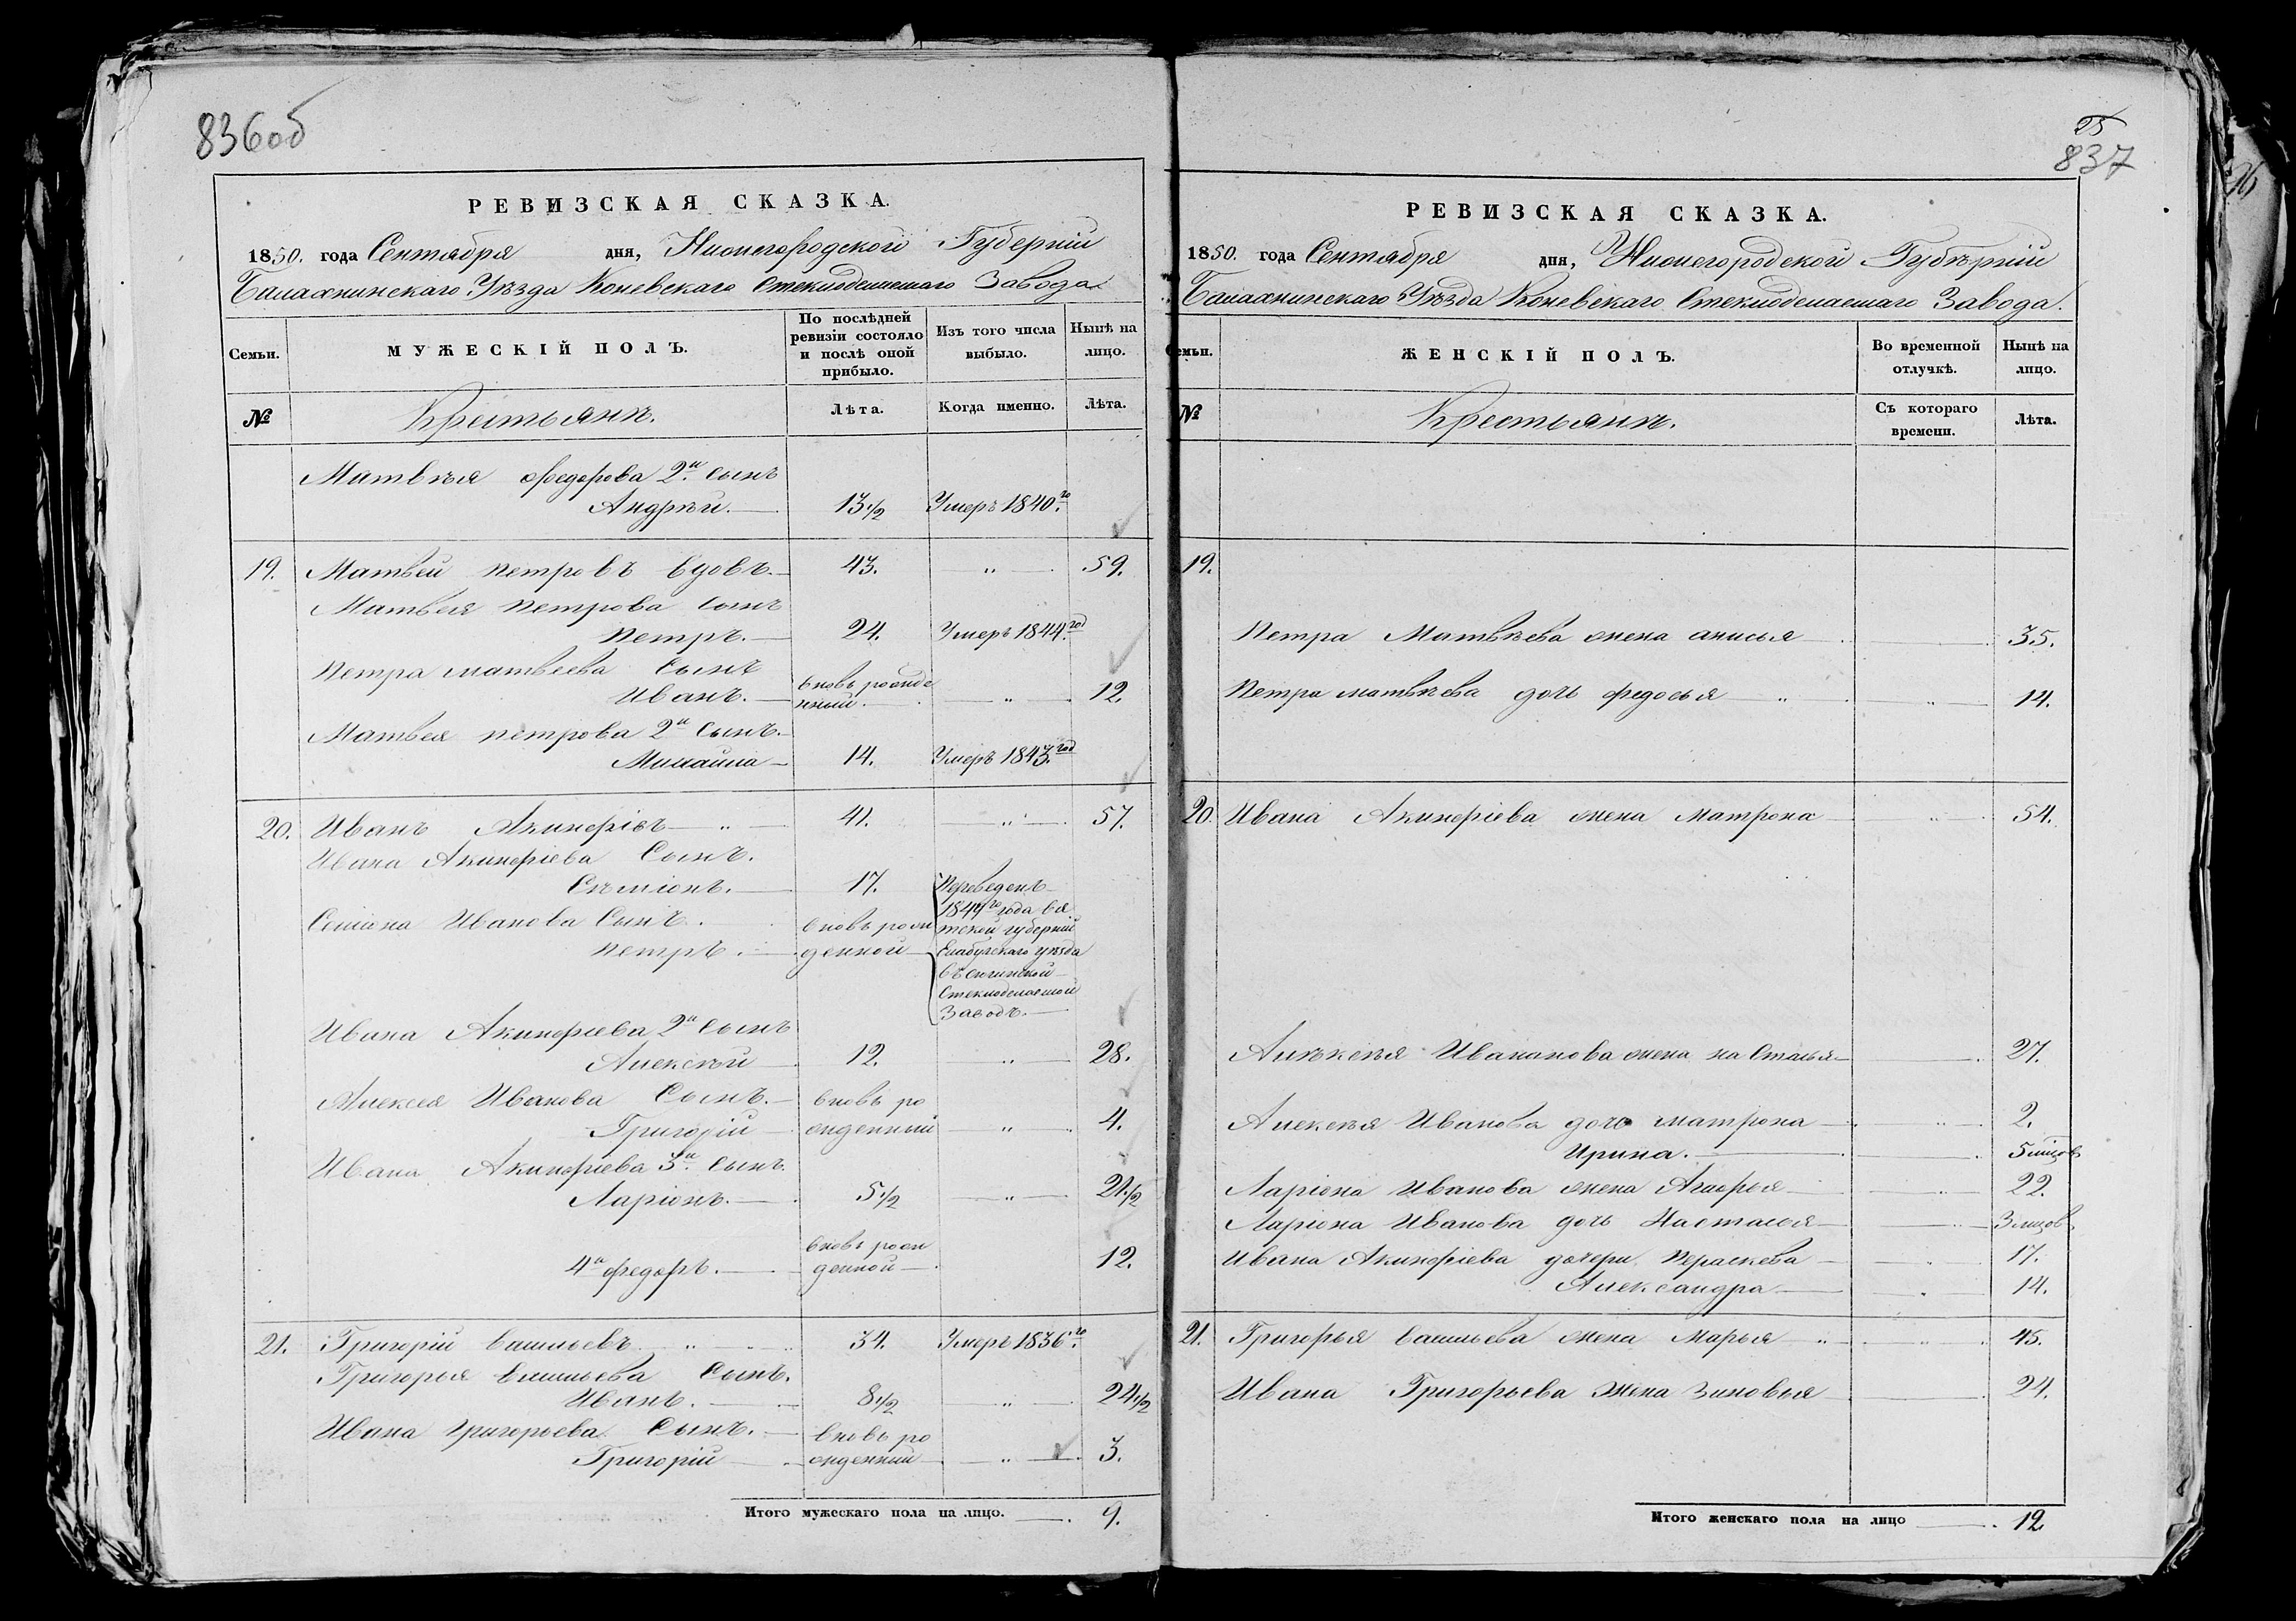 836об
РЕВИЗСКАЯ СКАЗКА.
1850. года Сентября дня, Нижегородской Губерніи
Балахнинскаго Уѣзда Коневскаго Стеклодѣлаемаго Завода.
Семьи.
МУЖЕСКІЙ ПОЛЪ.
По послѣдней ревизіи состояло и послѣ оной прибыло.
Изъ того числа выбыло.
Нынѣ на лицо.
№
Крестьянъ.
Лѣта.
Когда именно.
Лѣта.
Матвѣя Федорова 2й сынъ
Андрѣй. 13 1/2 Умеръ 1840го
19. Матвей Петровъ вдовъ. 43. „ 59.
Матвея Петрова сынъ
Петръ. 24. Умеръ 1844.год
Петра Матвеева сынъ
Иванъ. вновь рожденный „ 12.
Матвея Петрова 2й сынъ.
Михайла 14. Умеръ 1843.год
20. Иванъ Акинфіевъ „ 41. „ 57.
Ивана Акинфіева Сынъ.
Сѣміонъ. 17. Переведенъ
1844го года вя
Семіона Иванова Сынъ. вновь рож тской губерніи
Петръ. денной Елабугскаго уѣзда
въ
Стеклоделаемой
Заводъ.
Ивана Акинфіева 2й сынъ
Алексѣй 12. „ 28.
Алексея Иванова Сынъ. вновь ро
Григорій жденный „ 4.
Ивана Акинфіева 3й сынъ.
Ларіонъ. 5 1/2 „ 21 1/2
вновь рож
4й Федоръ. денной 12.
21. Григорій Васильевъ „ 34. Умеръ 1836го
Григорья Васильева Сынъ.
Иванъ. 8 1/2 „ 24 1/2
Ивана Григорьева Сынъ. вновь ро
Григорій жденный „ 3.
Итого мужескаго пола на лицо. 9.
25
837
РЕВИЗСКАЯ СКАЗКА.
1850. года Сентября дня, Нижегородской Губѣрніи
Балахнинскаго Уѣзда Коневскаго Стеклоделаемаго Завода.
Семьи.
ЖЕНСКІЙ ПОЛЪ.
Во временной отлучкѣ.
Нынѣ на лицо.
№
Крестьянъ.
Съ котораго времени.
Лѣта.
19.
Петра Матвѣева жена анисья 35.
Петра матвѣева дочь федосья „ „ 14.
20. Ивана Акинфіева жена Матрона „ 54.
Алѣксѣя Ивананова жена настасья 27.
Алексѣя Иванова дочь матрона „ 2.
Ирина. 5 мцов
Ларіона Иванова жена Агафья „ 22.
Ларіона Иванова дочь Настасья „ 3 мцов
Ивана Акинфіева дочери Пераскева „ 17.
Александра „ 14.
21. Григорья Васильева жена Марья „ „ 45.
Ивана Григорьева жена Зиновья 24.
Итого женскаго пола на лицо 12